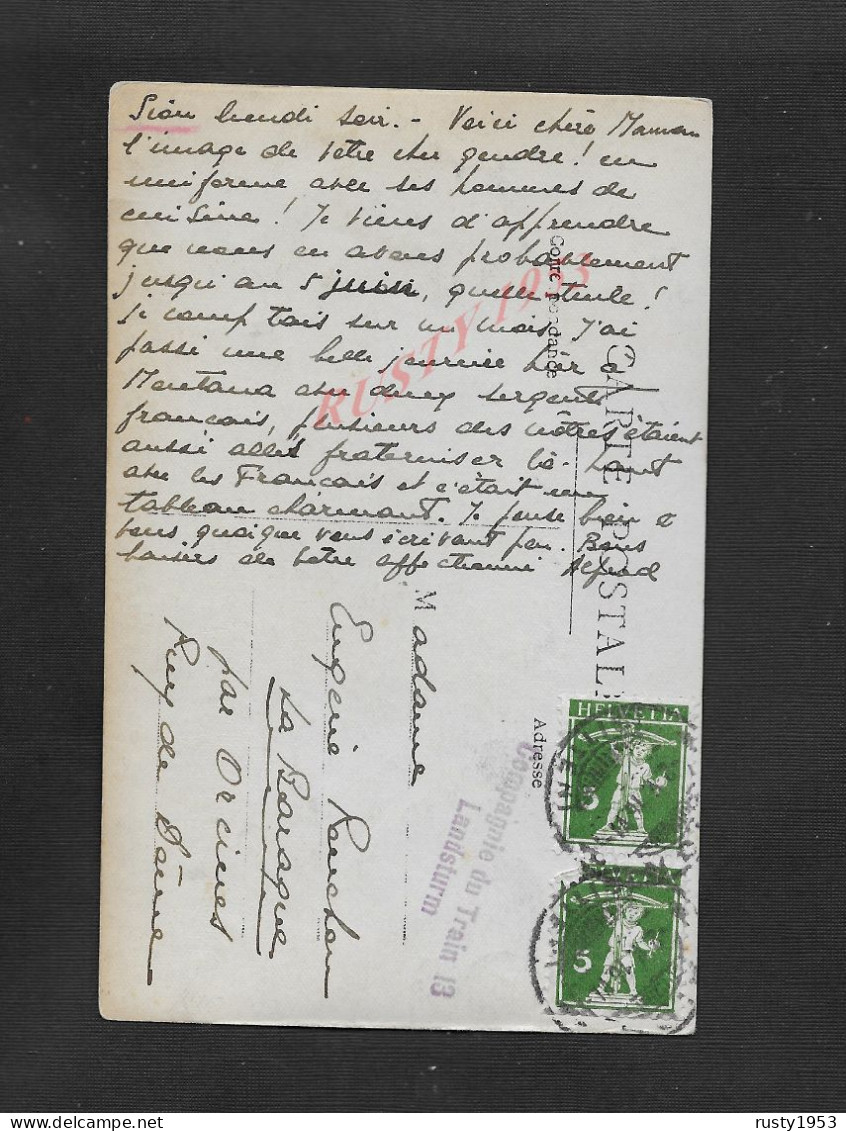 Sion lundi soir. - Voici chère Maman
l'image de votre cher gendre! en
uniforme avec ses hommes de
cuisine! Je viens d'apprendre
que nous en avons probablement
jusqu'au 5 juin, quelle tuile!
je comptais sur un mois. J'ai
passé une belle journée hier à
Montana avec deux sergents
français, plusieurs des nôtres étaient
aussi allés fraterniser là-haut
avec les Français et c'était un
tableau charmant. Je pense bien à
vous quoique vous écrivant peu. Bons
baisers de votre affectionné Alfred
CARTE POSTALE
Correspondance
Adresse
Madame
Eugénie
La Baraque
par Orcines
Puy de Dôme
Compagnie du Train 13
Landsturm
HELVETIA
5
HELVETIA
5
RUSTY 1953
rusty1953